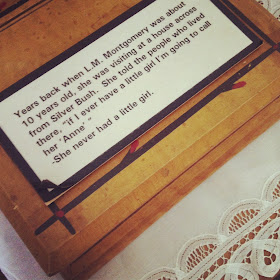 Years back when L.M. Montgomery was about
10 years old, she was visiting at a house across
from Silver Bush. She told the people who lived
there, "if I ever have a little girl I'm going to call
her 'Anne' "
-She never had a little girl.